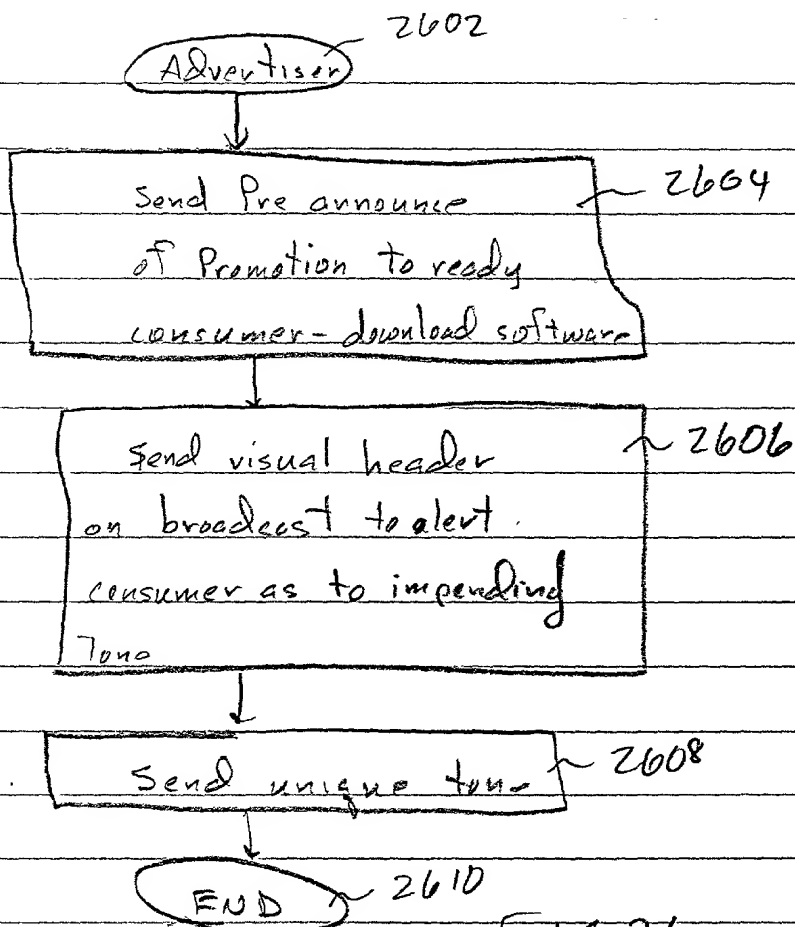 2602
Advertiser
Send Pre announce 2604
of Promotion to ready
consumer - download software
Send visual header 2606
on broadcast to alert
consumer as to impending
Tone
Send unique tone 2608
END 2610